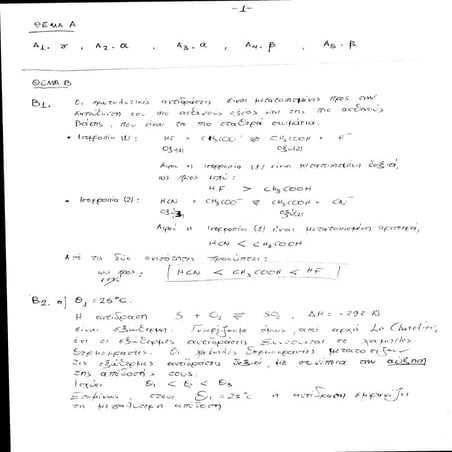 -1-
ΘΕΜΑ Α
Α1. γ , Α2. α , Α3. α , Α4. β , Α5. β
ΘΕΜΑ Β
Β1. Οι πρωτολυτικές αντιδράσεις είναι μετατοπισμένες προς την
κατεύθυνση του πιο ασθενούς οξέος και της πιο ασθενούς
βάσης, που είναι τα πιο σταθερά σωματία.
• Ισορροπία (1): HF + CH3COO⁻ ⇌ CH3COOH + F⁻
οξύ(1) οξύ(2)
Αφού η ισορροπία (1) είναι μετατοπισμένη δεξιά,
ως προς ισχύ:
HF > CH3COOH
• Ισορροπία (2): HCN + CH3COO⁻ ⇌ CH3COOH + CN⁻
οξύ3 οξύ(2)
Αφού η ισορροπία (2) είναι μετατοπισμένη αριστερά,
HCN < CH3COOH
Από τις δύο ανισότητες προκύπτει:
ως προς HCN < CH3COOH < HF
ισχύ
Β2. α) θ1 = 25°C.
Η αντίδραση S + O2 ⇌ SO2, ΔH = -295 KJ
είναι εξώθερμη. Γνωρίζουμε όμως, από αρχή Le Chatelier,
ότι οι εξώθερμες αντιδράσεις ευνοούνται σε χαμηλές
θερμοκρασίες. Οι χαμηλές θερμοκρασίες μετατοπίζουν
τις εξώθερμες αντιδράσεις δεξιά με συνέπεια την αύξηση
της απόδοσής τους.
Ισχύει θ1 < θ2 < θ3
Επομένως, στους θ1 = 25°C η αντίδραση εμφανίζει
τη μεγαλύτερη απόδοση